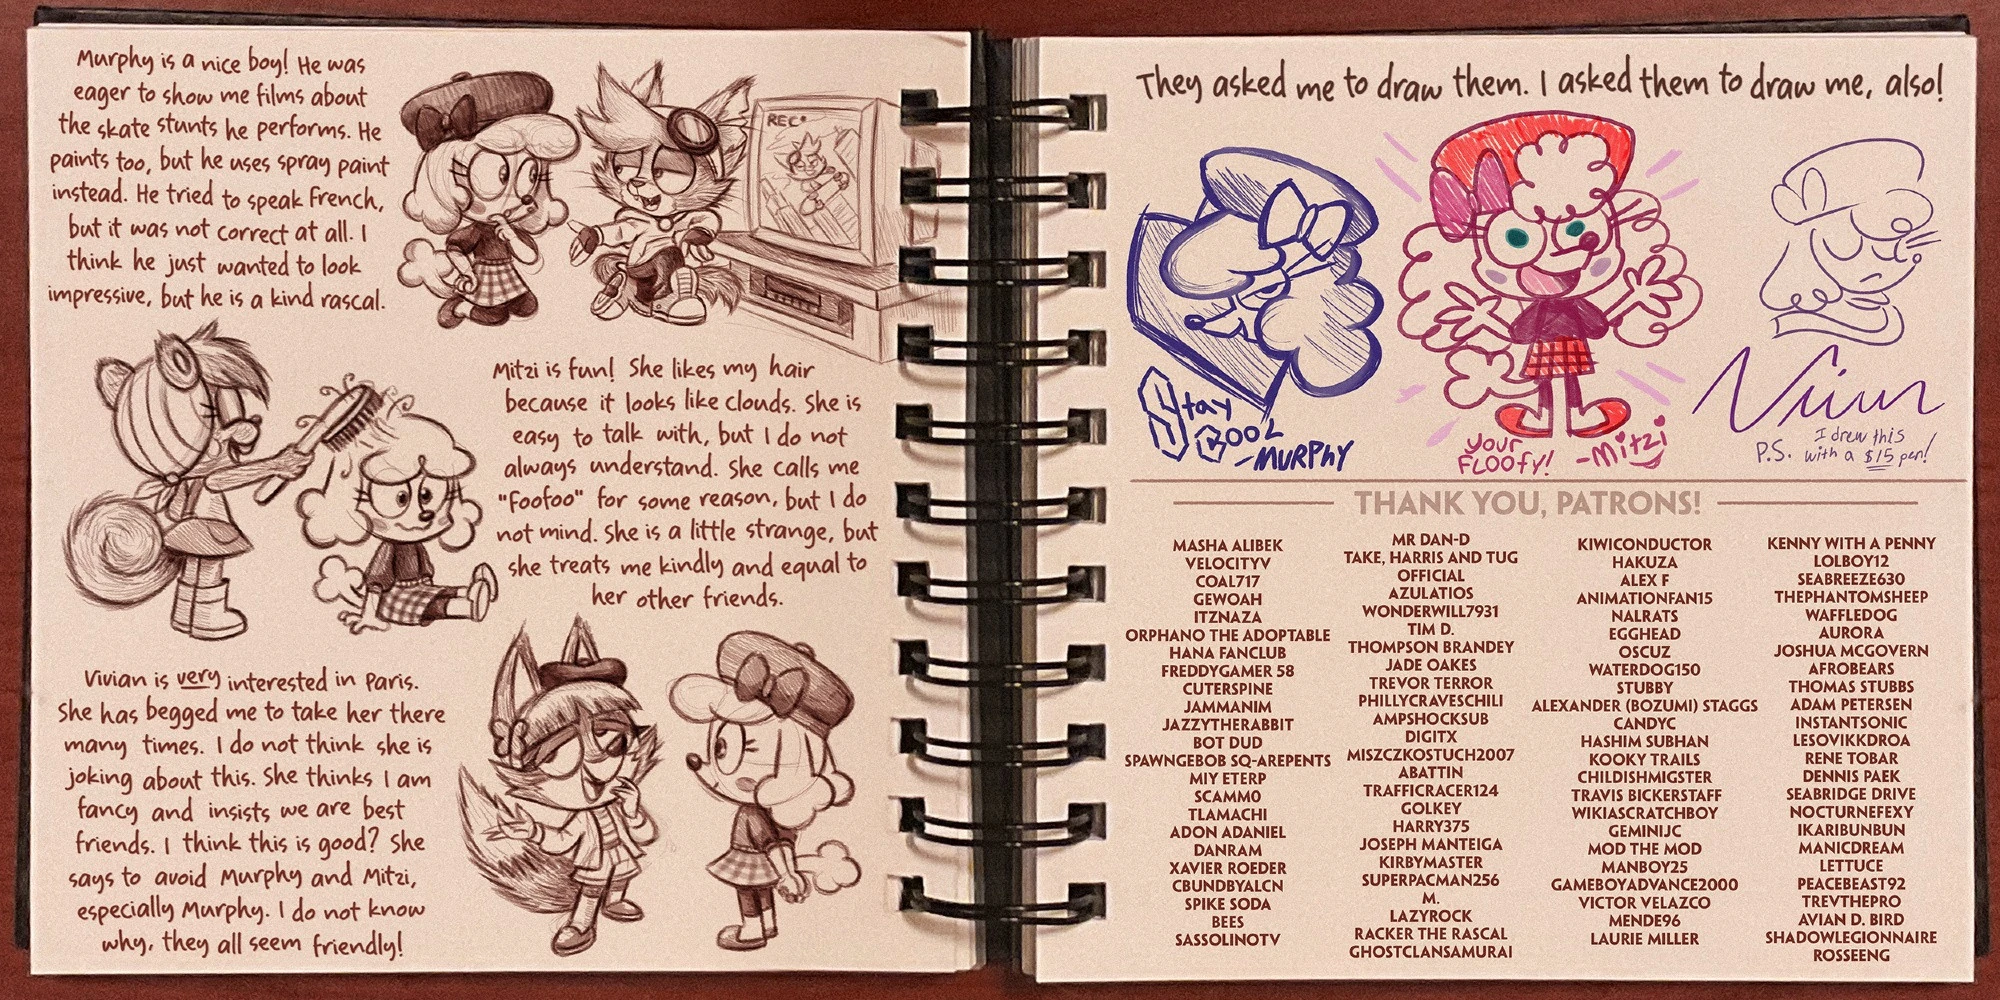 Murphy is a nice boy! He was
eager to show me films about
the skate stunts he performs. He
paints too, but he uses spray paint
instead. He tried to speak French,
but it was not correct at all. I
think he just wanted to look
impressive, but he is a kind rascal.
REC
Mitzi is fun! She likes my hair
because it looks like clouds. She is
easy to talk with, but I do not
always understand. She calls me
"Foofoo" for some reason, but I do
not mind. She is a little strange, but
she treats me kindly and equal to
her other friends.
Vivian is very interested in Paris.
She has begged me to take her there
many times. I do not think she is
joking about this. She thinks I am
fancy and insists we are best
friends. I think this is good? She
says to avoid Murphy and Mitzi,
especially Murphy. I do not know
why, they all seem friendly!
They asked me to draw them. I asked them to draw me, also!
Stay
Cool
-MURPHY
your
FLOOFy!
-Mitzi
P.S. I drew this
with a $15 pen!
THANK YOU, PATRONS!
MASHA ALIBEK
VELOCITYV
COAL717
GEWOAH
ITZNAZA
ORPHANO THE ADOPTABLE
HANA FANCLUB
FREDDYGAMER 58
CUTERSPINE
JAMMANIM
JAZZYTHERABBIT
BOT DUD
SPAWNGEBOB SQ-AREPENTS
MIY ETERP
SCAMM0
TLAMACHI
ADON ADANIEL
DANRAM
XAVIER ROEDER
CBUNDBYALCN
SPIKE SODA
BEES
SASSOLINOTV
MR DAN-D
TAKE, HARRIS AND TUG
OFFICIAL
AZULATIOS
WONDERWILL7931
TIM D.
THOMPSON BRANDEY
JADE OAKES
TREVOR TERROR
PHILLYCRAVESCHILI
AMPSHOCKSUB
DIGITX
MISZCZKOSTUCH2007
ABATTIN
TRAFFICRACER124
GOLKEY
HARRY375
JOSEPH MANTEIGA
KIRBYMASTER
SUPERPACMAN256
M.
LAZYROCK
RACKER THE RASCAL
GHOSTCLANSAMURAI
KIWICONDUCTOR
HAKUZA
ALEX F
ANIMATIONFAN15
NALRATS
EGGHEAD
OSCUZ
WATERDOG150
STUBBY
ALEXANDER (BOZUMI) STAGGS
CANDYC
HASHIM SUBHAN
KOOKY TRAILS
CHILDISHMIGSTER
TRAVIS BICKERSTAFF
WIKIASCRATCHBOY
GEMINIJC
MOD THE MOD
MANBOY25
GAMEBOYADVANCE2000
VICTOR VELAZCO
MENDE96
LAURIE MILLER
KENNY WITH A PENNY
LOLBOY12
SEABREEZE630
THEPHANTOMSHEEP
WAFFLEDOG
AURORA
JOSHUA MCGOVERN
AFROBEARS
THOMAS STUBBS
ADAM PETERSEN
INSTANTSONIC
LESOVIKKDROA
RENE TOBAR
DENNIS PAEK
SEABRIDGE DRIVE
NOCTURNEFEXY
IKARIBUNBUN
MANICDREAM
LETTUCE
PEACEBEAST92
TREVTHEPRO
AVIAN D. BIRD
SHADOWLEGIONNAIRE
ROSSEENG